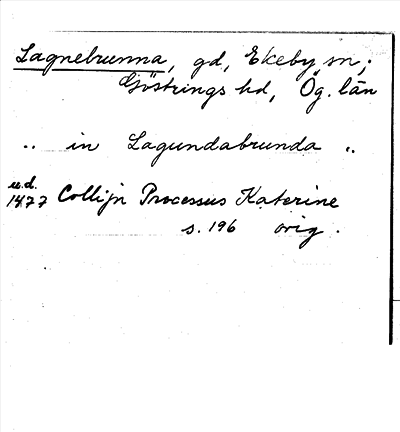 Lagnebrunna, gd, Ekeby sn;
Göstrings hd, Ög. län
.. in Lagundabrunda ..
u.d.
1477 Collijn Processus Katerine
s. 196 orig.